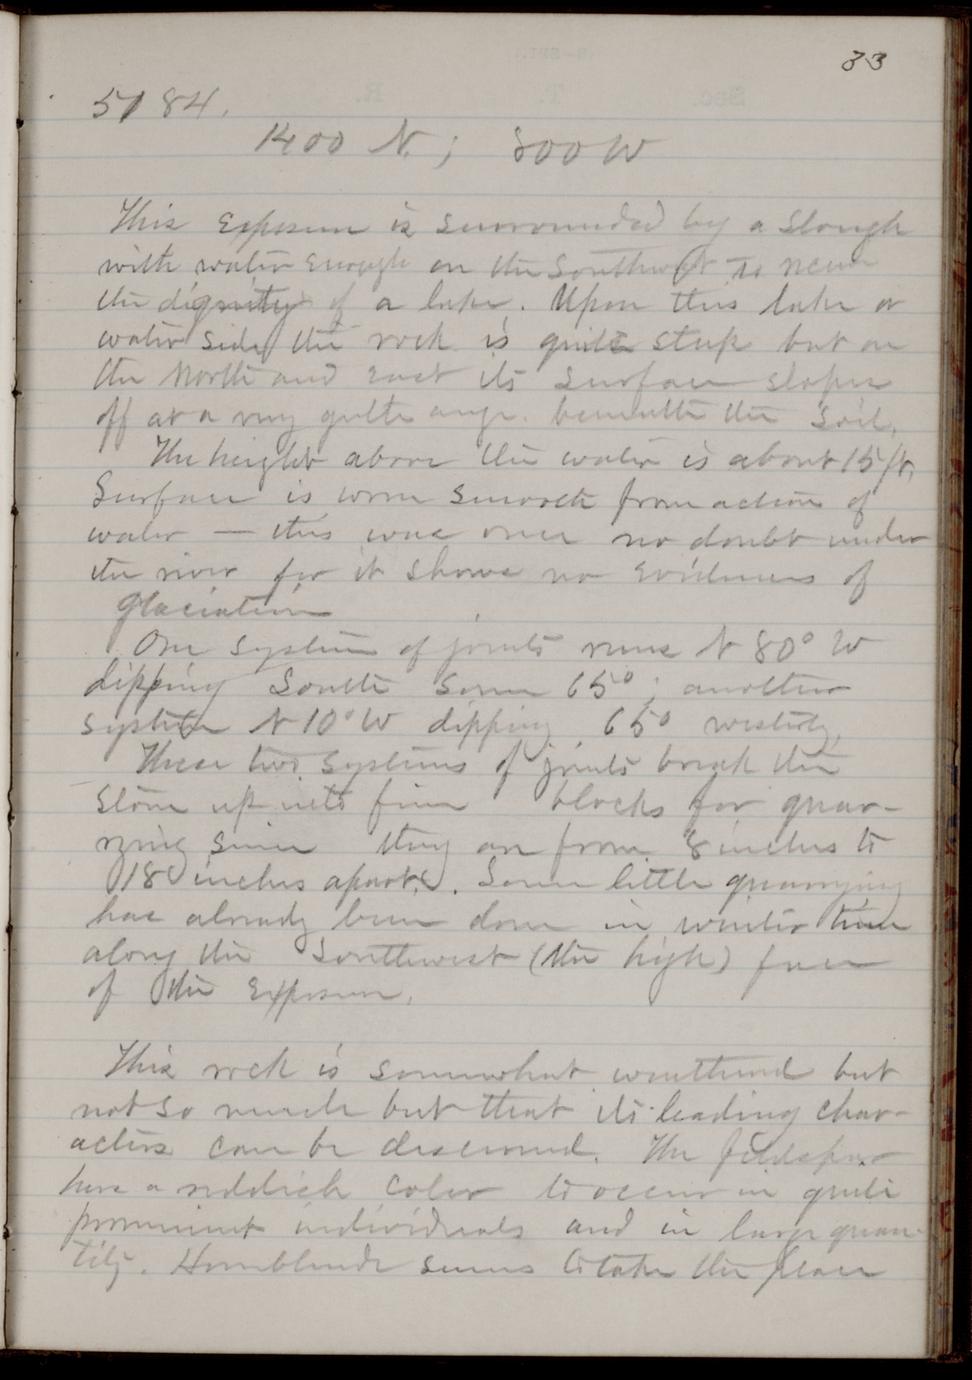 33
5184.
1400 N. ; 800 W
This exposure is surrounded by a slough
with water enough on the Southwest to
the dignity of a lake. Upon this lake or
water side the rock is quite steep but on
the North and East its surface slopes
off at a very gentle angle beneath the soil.
The height above the water is about 15 ft.
Surface is worn smooth from action of
water — this was once no doubt under
the river for it shows no evidences of
glaciation
One system of joints runs N 80° W
dipping South some 65° ; another
system N 10° W dipping 65° westerly.
These two systems of joints break the
stone up into fine blocks for quar-
rying since they are from 8 inches to
18 inches apart. Some little quarrying
has already been done in winter time
along the Southwest (the high) face
of the exposure.
This rock is somewhat weathered but
not so much but that its leading char-
acters can be discerned. The feldspar
has a reddish color to occur in quite
prominent individuals and in large quan-
tity. Hornblende seems to take the place